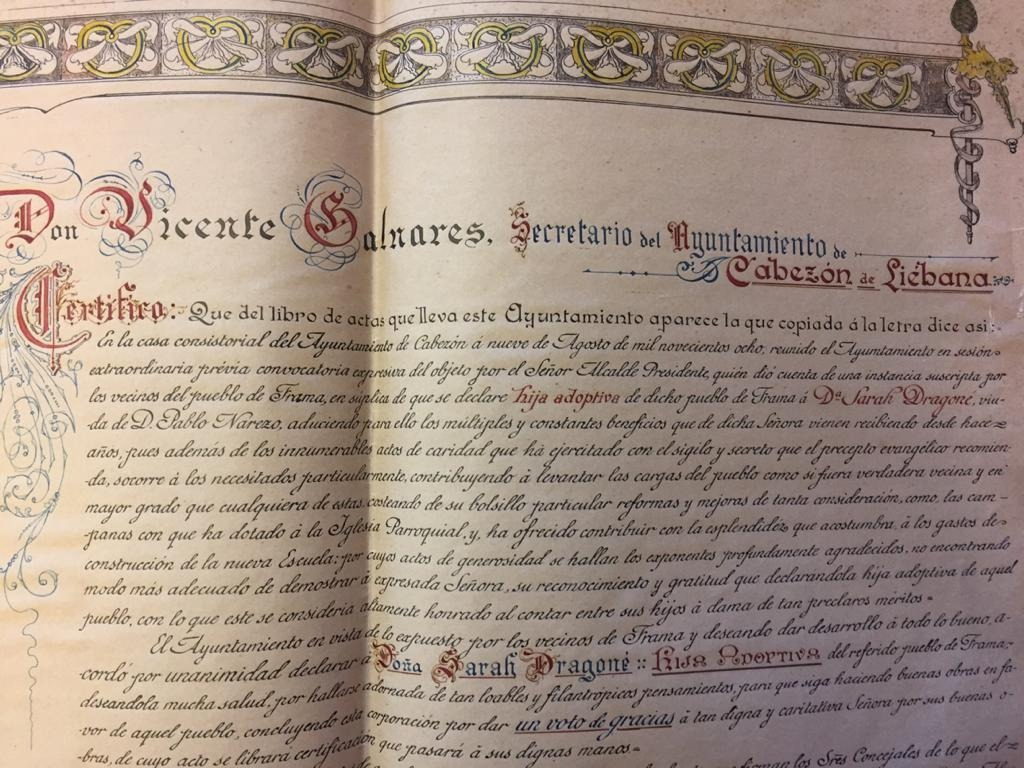 Don Vicente Galnares, Secretario del Ayuntamiento de
Cabezón de Liébana
Certifico: Que del libro de actas que lleva este Ayuntamiento aparece la que copiada á la letra dice asi:
En la casa consistorial del Ayuntamiento de Cabezón á nueve de Agosto de mil novecientos ocho, reunido el Ayuntamiento en sesión=
extraordinaria prévia convocatoria expresiva del objeto por el Señor Alcalde Presidente, quién dió cuenta de una instancia suscripta por
los vecinos del pueblo de Frama, en súplica de que se declare hija adoptiva de dicho pueblo de Frama á Dª Sarah Dragoné, viu-
da de D. Pablo Narezo, aduciendo para ello los múltiples y constantes beneficios que de dicha Señora vienen recibiendo desde hace=
años, pues además de los innumerables actos de caridad que há ejercitado con el sigilo y secreto que el precepto evangélico recomien-
da, socorre á los necesitados particularmente, contribuyendo á levantar las cargas del pueblo como si fuera verdadera vecina y en
mayor grado que cualquiera de estas, costeando de su bolsillo particular reformas y mejoras de tanta consideración, como, las cam-
panas con que ha dotado á la Iglesia Parroquial, y, ha ofrecido contribuir con la esplendidéz que acostumbra, á los gastos de=
construcción de la nueva Escuela: por cuyos actos de generosidad se hallan los exponentes profundamente agradecidos, no encontrando
modo más adecuado de demostrar á expresada Señora, su reconocimiento y gratitud que declarándola hija adoptiva de aquel
pueblo, con lo que este se consideria altamente honrado al contar entre sus hijos á dama de tan preclaros méritos=
El Ayuntamiento en vista de lo expuesto por los vecinos de Frama y deseando dar desarrollo á todo lo bueno, a-
cordó por unanimidad declarar á Doña Sarah Dragoné :: Hija Adoptiva del referido pueblo de Frama;
deseandola mucha salud, por hallarse adornada de tan loables y filantrópicos pensamientos, para que siga haciendo buenas obras en fa-
vor de aquel pueblo, concluyendo esta corporación por dar un voto de gracias á tan digna y caritativa Señora por sus buenas o-
bras, de cuyo acto se librará certificación que pasará á sus dignas manos=
firman los Sres Concejales de lo que el=